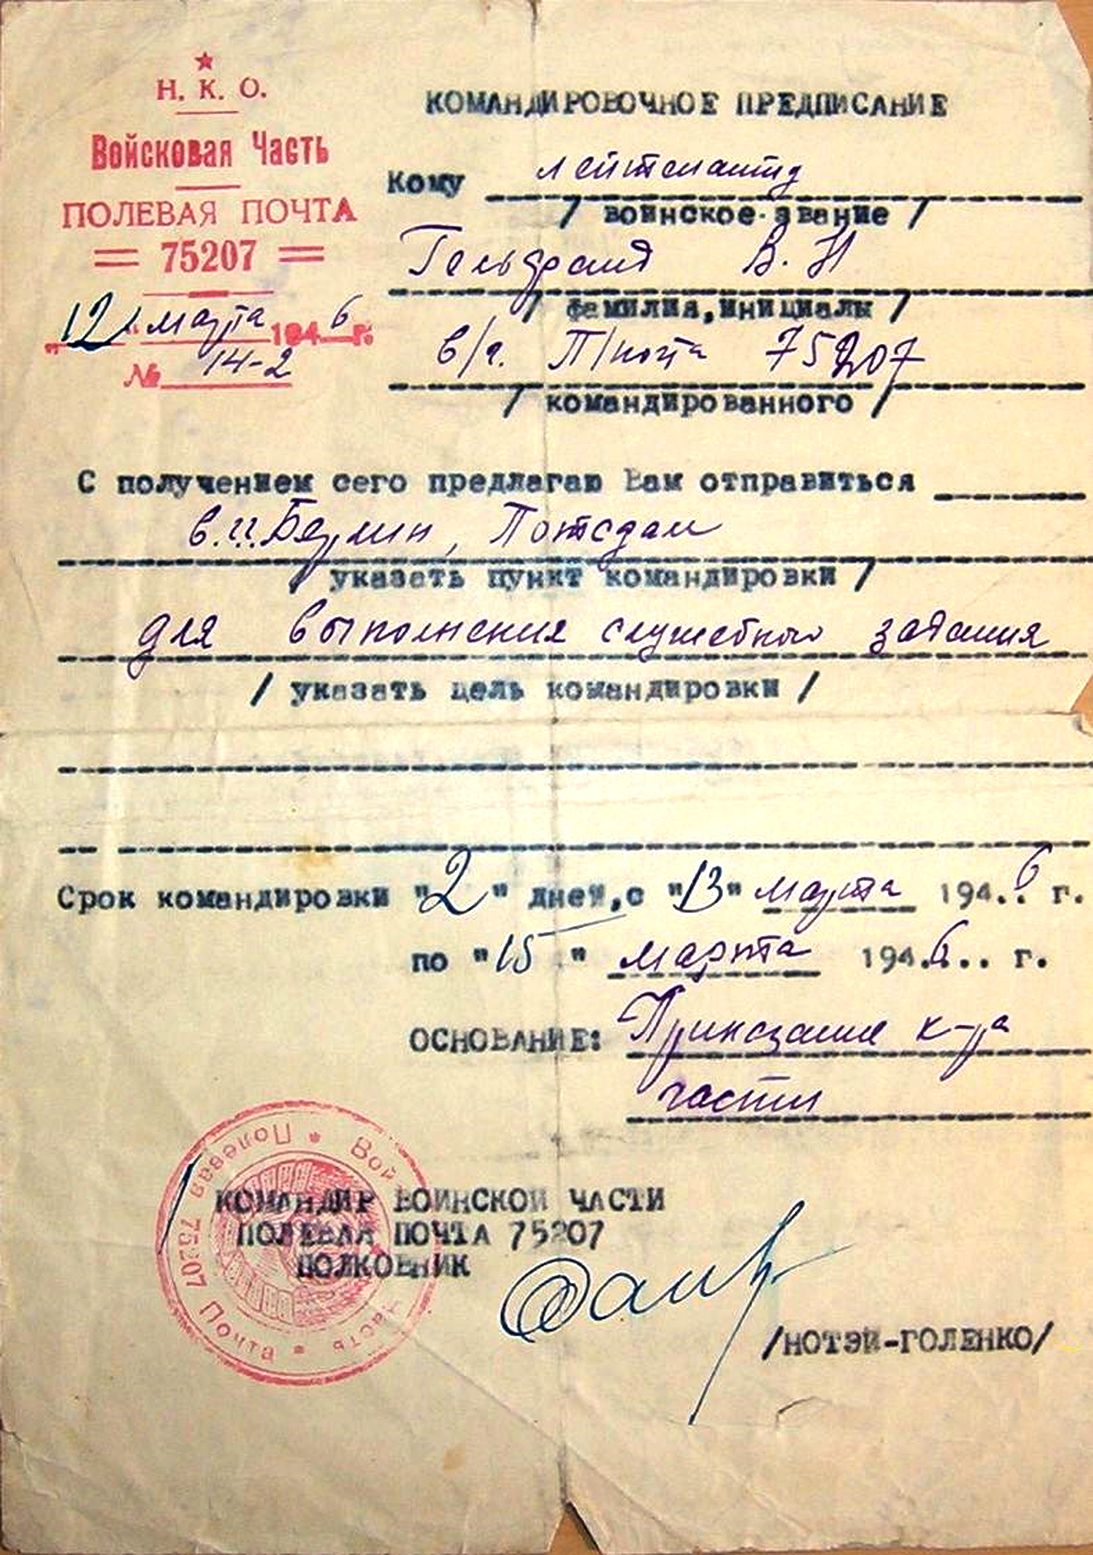 Н. К. О.
Войсковая Часть
ПОЛЕВАЯ ПОЧТА
75207
"12" марта 1946 г.
№ 14-2
КОМАНДИРОВОЧНОЕ ПРЕДПИСАНИЕ
Кому лейтенанту
/ воинское звание /
В. Н
/ фамилия, инициалы /
в/ч. П/почта 75207
/ командированного /
С получением сего предлагаю Вам отправиться
Берлин, Потсдам
/ указать пункт командировки /
для выполнения служебного задания
/ указать цель командировки /
Срок командировки "2" дней, с "13" марта 194.6 г.
по "15" марта 194.6.. г.
ОСНОВАНИЕ: Приказание к-ра
части
КОМАНДИР ВОИНСКОЙ ЧАСТИ
ПОЛЕВАЯ ПОЧТА 75207
ПОЛКОВНИК
/НОТЭЙ-ГОЛЕНКО/
Войсковая часть * Полевая Почта 75207 *